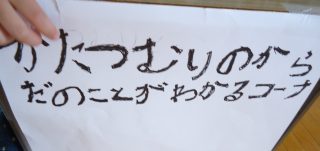 かたつむりのから
だのことがわかるコーナ